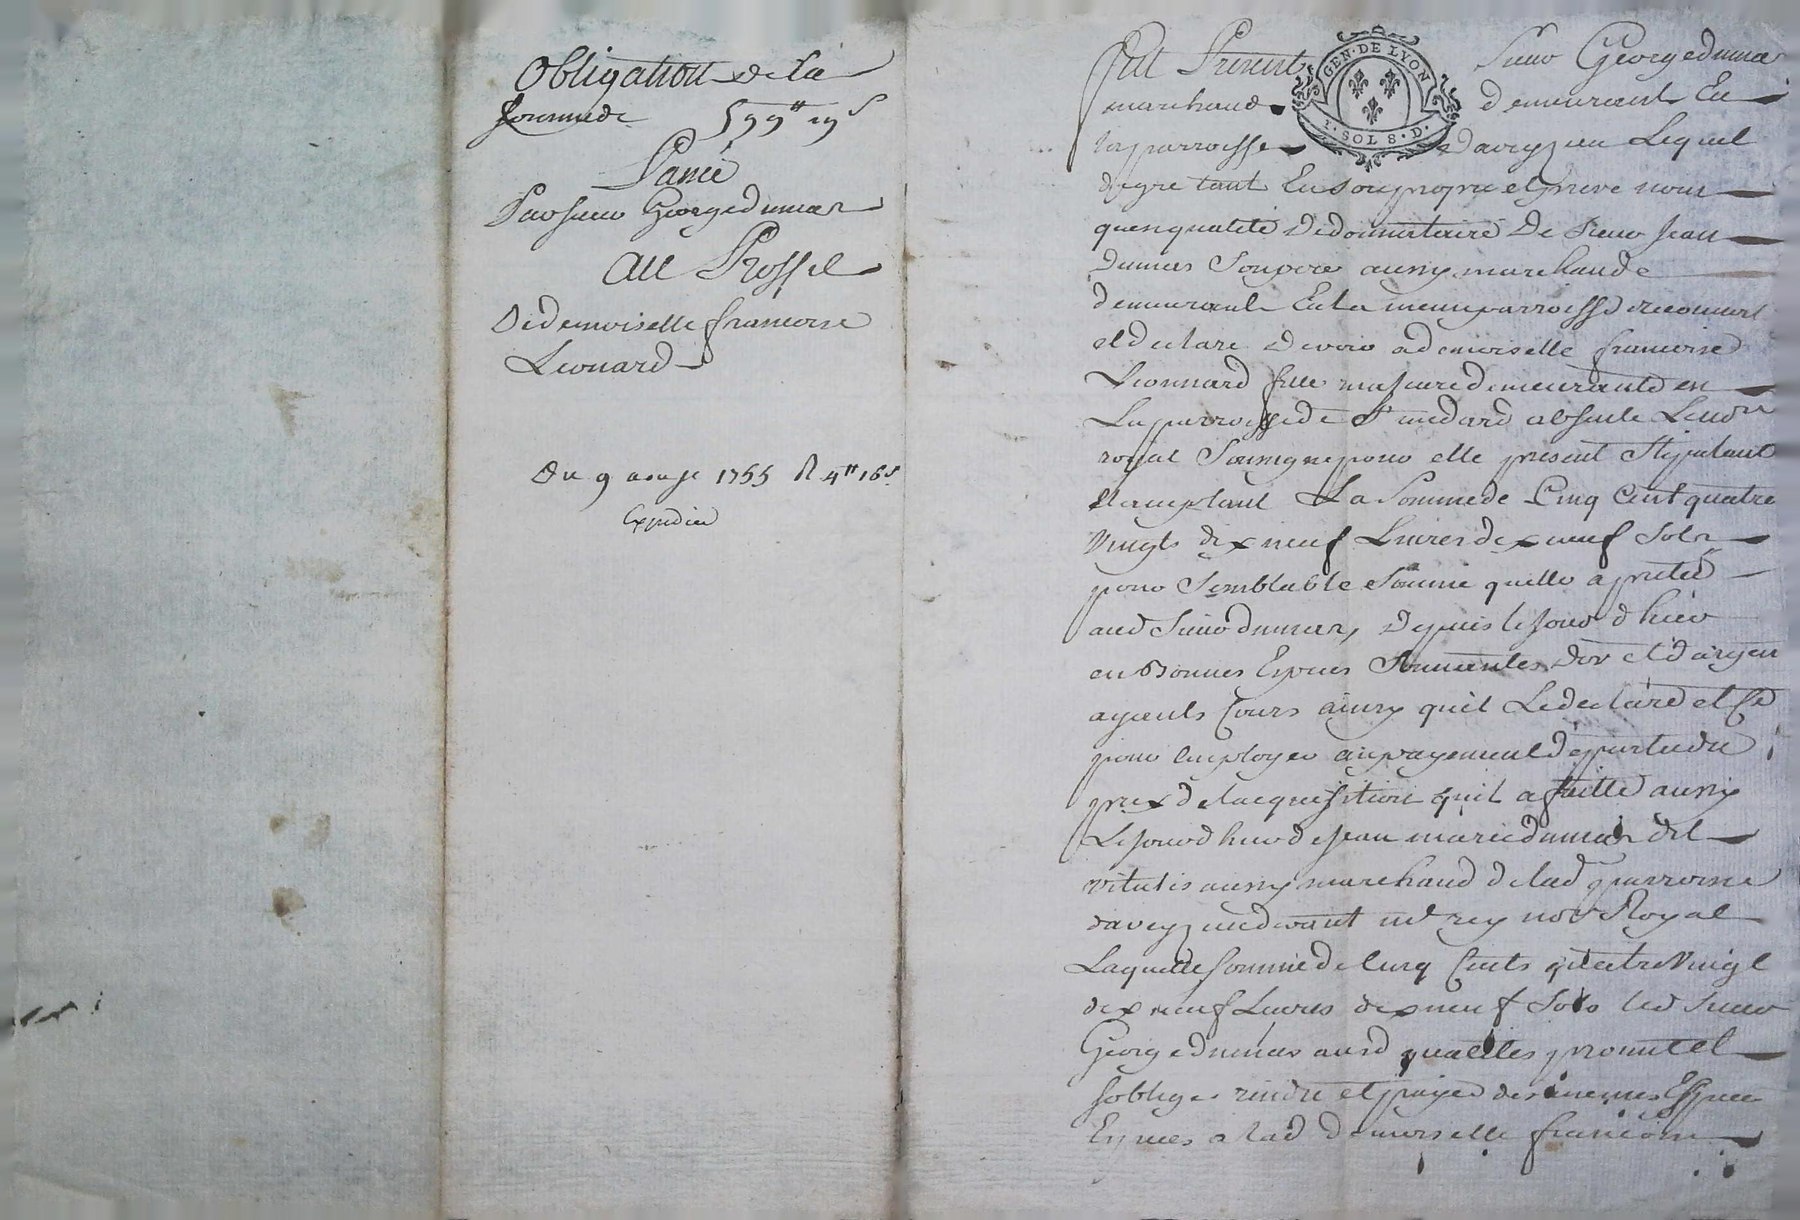 Obligation de la
somme de 599ᵗᵗ 19ˢ
Passé
Par sieur George dumas
Au Proffit
De demoiselle francoise
Leonard
Du 9 1755 R 4ᵗᵗ 16ˢ
Expedier
GEN·DE LYON
SOL 8·D·
Fut Present Sieur George dumas
marchand demeurant En
la parroisse daveyzieu Lequel
de gre tant En son propre et prive nom
quen qualité De donnataire De sieur Jean
dumas Son pere aussy marchand
demeurant En La meme parroisse reconnoit
et declare devoir a demoiselle francoise
Leonnard fille majeure demeurante en
La parroisse de Sᵗ medard absente Le noʳᵉ
royal Soussigne pour elle present Stipulant
et acceptant La Somme de Cinq Cent quatre
Vingts dix neuf Livres dix neuf Sols
pour Semblable Somme quelle a prete
aud Sieur dumas, depuis le jour d hier
en Bonnes Especes Sonnantes dor et d'argen
ayants Cours ainsy quil Le declare et Ce
pour employer au payement de partie du
prix de lacquisition quil a faitte aussy
Le jour d hier de jean marie dumas dit
vitalis aussy marchand de lad parroisse
daveyzieu devant mᵉ rey noʳᵉ Royal
Laquelle somme de Cinq Cents quatre Vingt
dix neuf Livres dix neuf Sols led Sieur
George dumas ausd qualites promet et
soblige rendre et payer des memes Especes
a lad demoiselle francoise